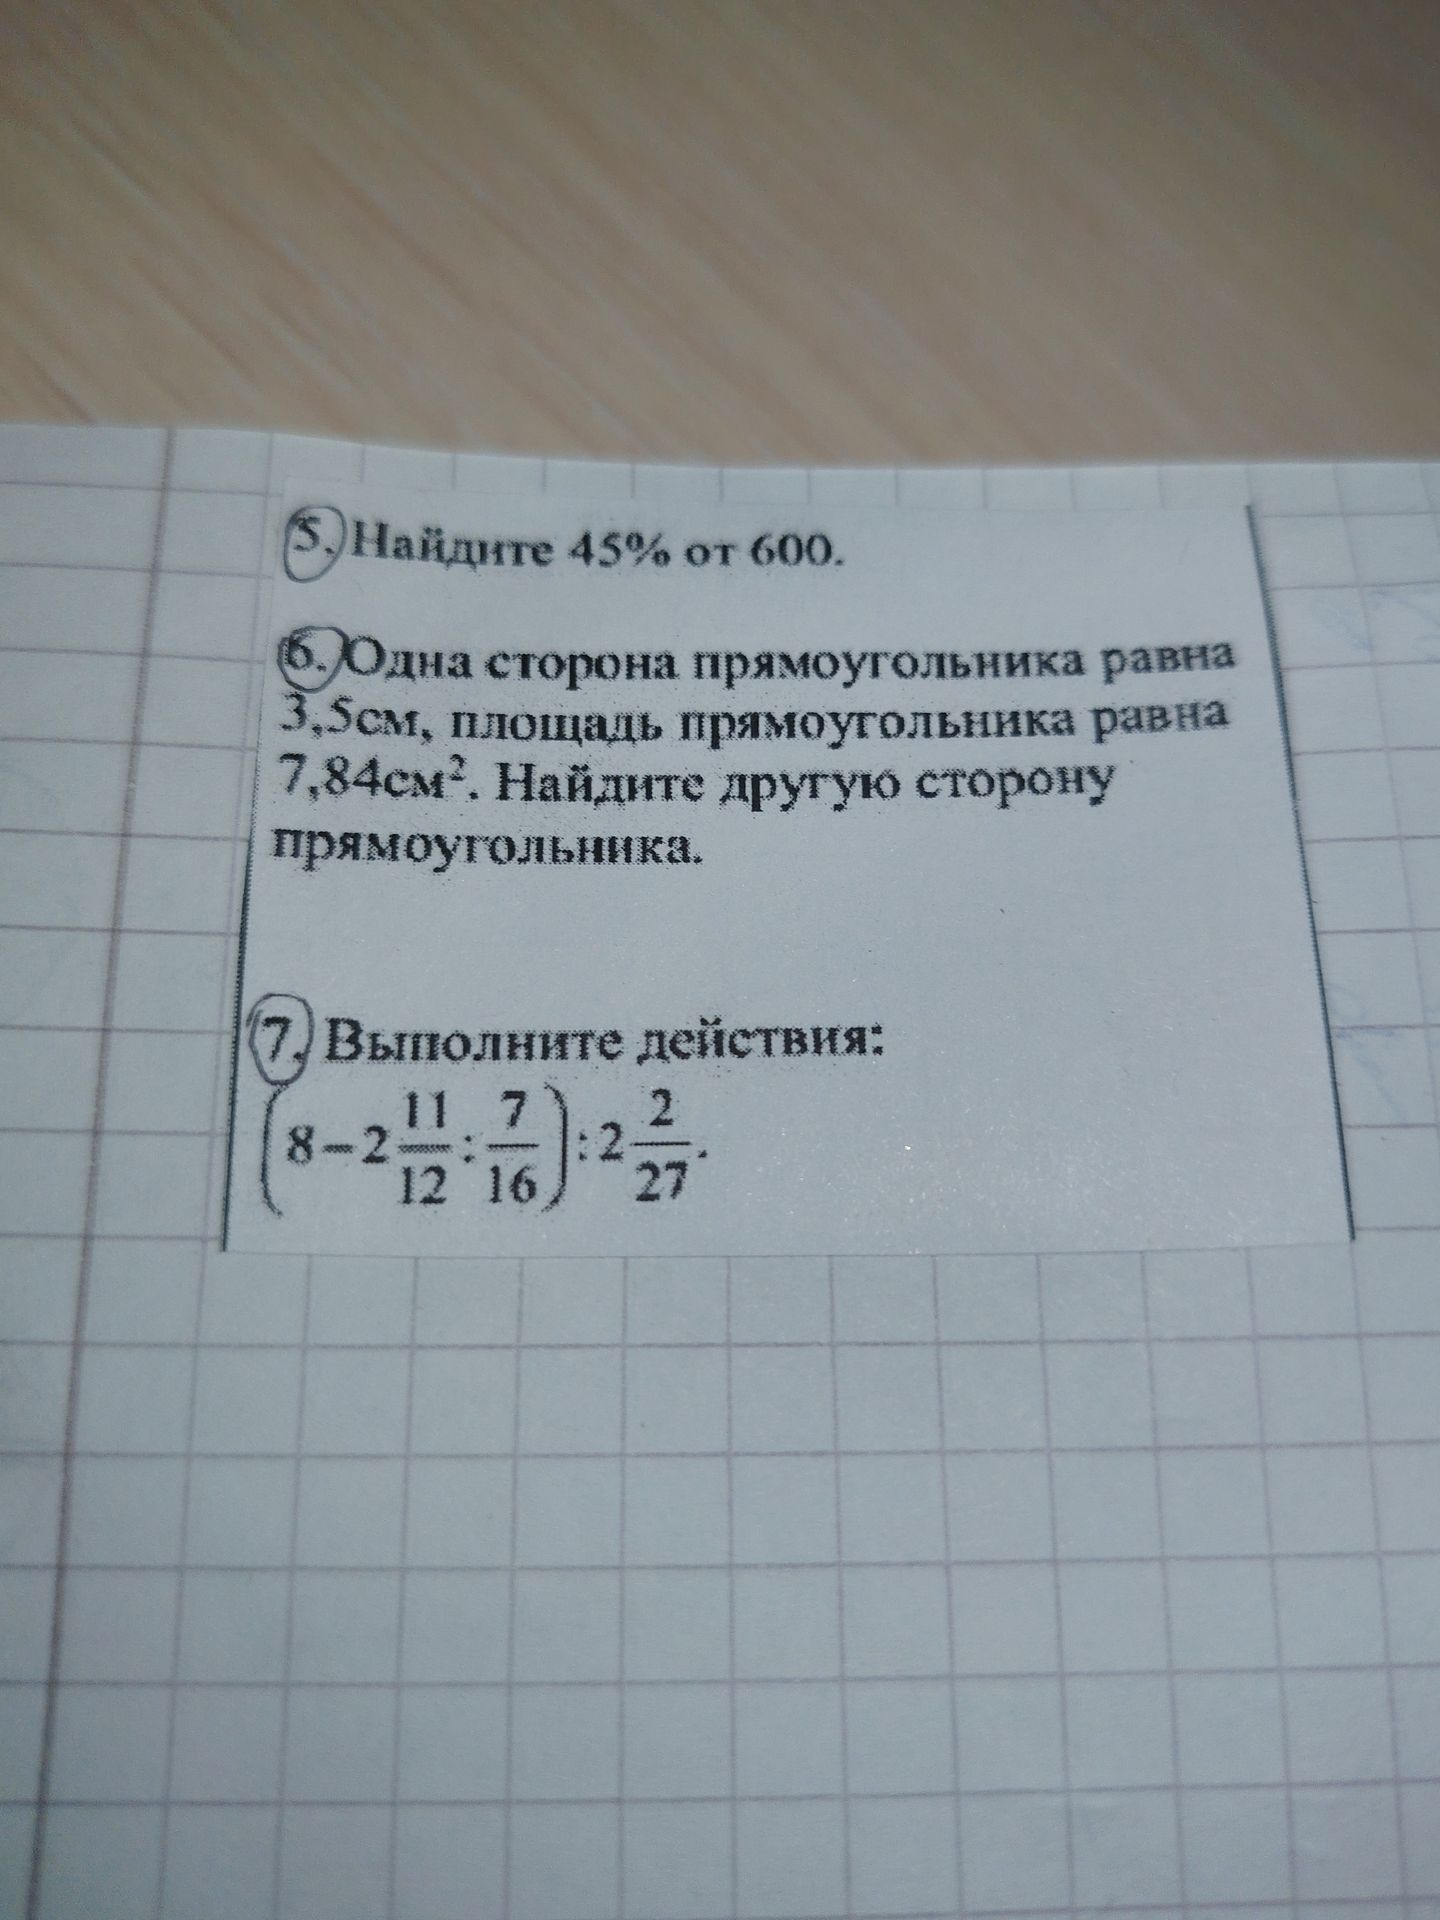 5. Найдите 45% от 600.
6. Одна сторона прямоугольника равна
3,5см, площадь прямоугольника равна
7,84см². Найдите другую сторону
прямоугольника.
7. Выполните действия:
(8 − 2 11/12 : 7/16) : 2 2/27.